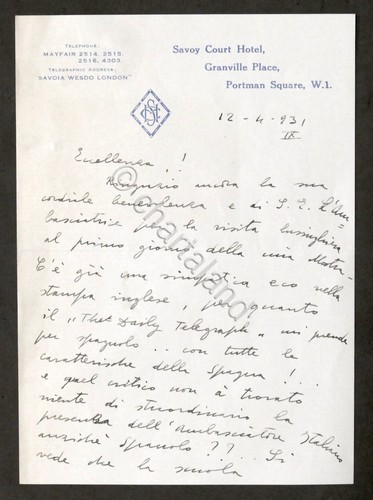 TELEPHONE:
MAYFAIR 2514, 2515,
2516, 4303.
TELEGRAPHIC ADDRESS:
"SAVOIA WESDO LONDON"
Savoy Court Hotel,
Granville Place,
Portman Square, W.1.
12-4-931
IX
Eccellenza!
Ringrazio ancora la sua
cordiale benevolenza e di S. E. l'Am=
basciatrice per la visita lusinghiera
al primo giorno della mia Mostra.
C'è già una simpatica eco nella
stampa inglese, per quanto
il "The Daily Telegraph" mi prende
per spagnolo.. con tutte le
caratteristiche della Spagna!...
e quel critico non à trovato
niente di straordinario la
presenza dell'Ambasciatore Italiano
anzichè Spagnolo??... Si
vede che la scuola
© chartaland